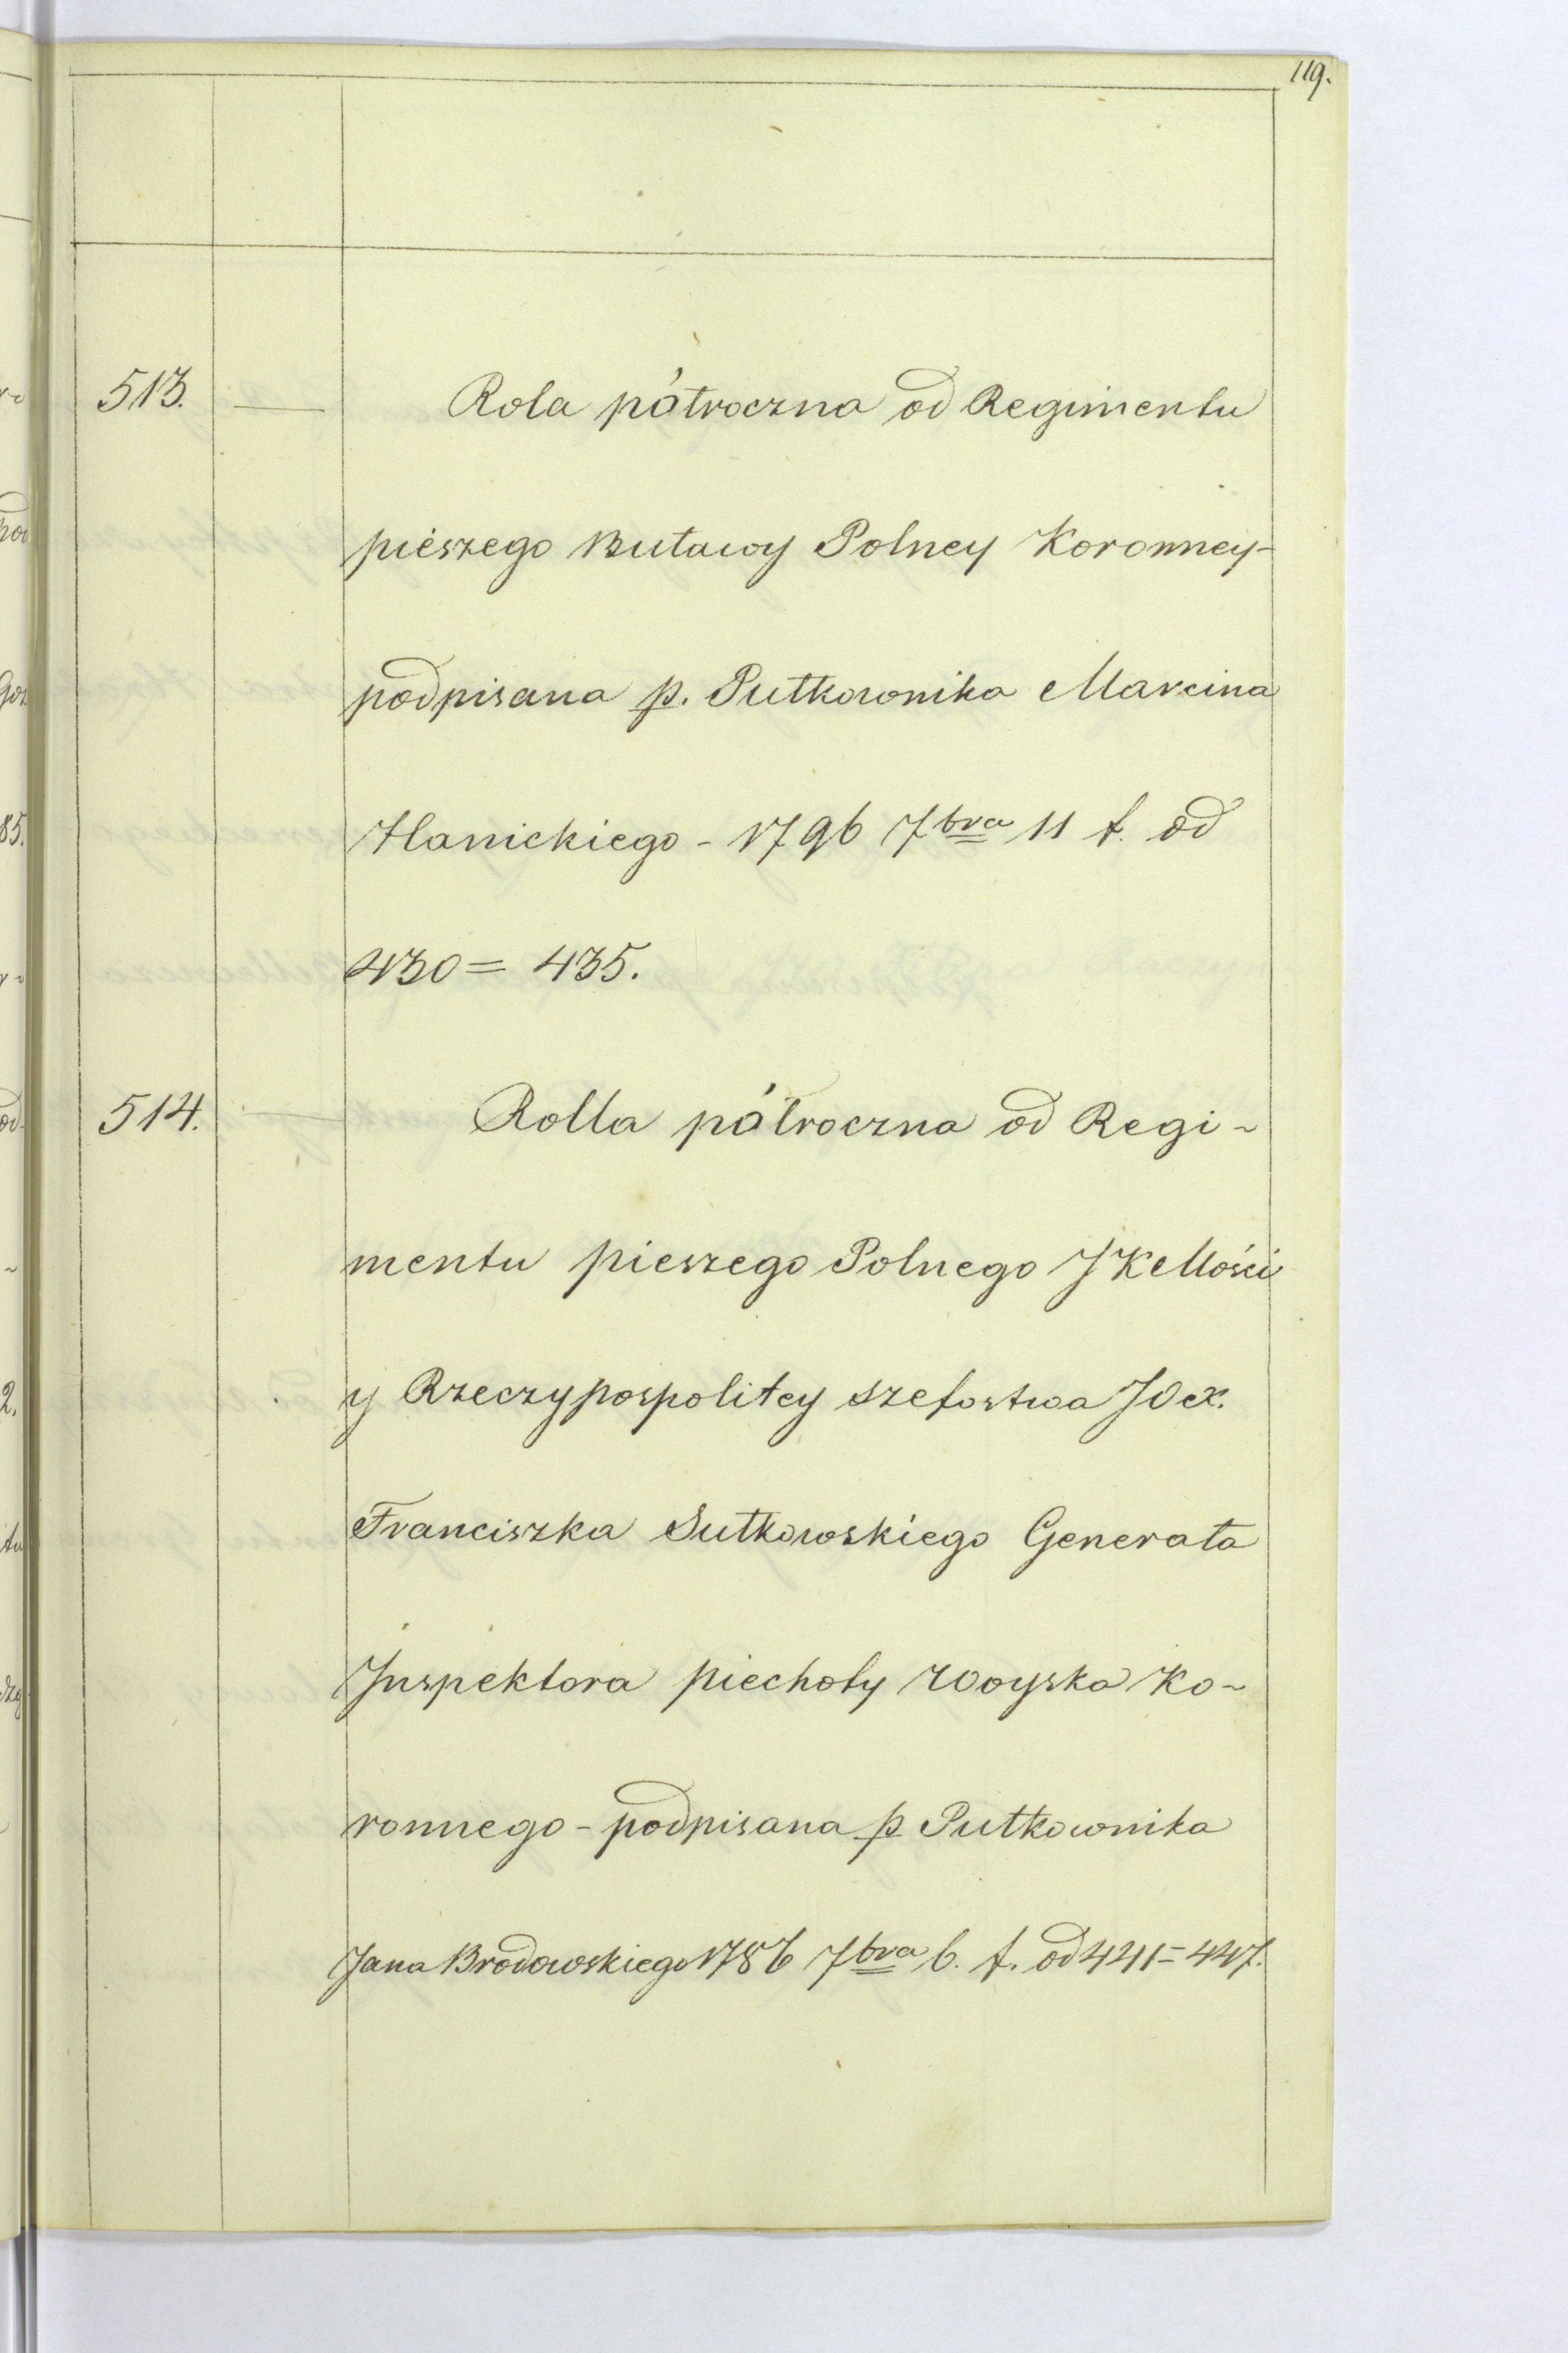 119.
513. — Rola półroczna od Regimentu
pieszego Buławy Polney Koronney-
podpisana p. Pułkownika Marcina
Hanickiego - 1796 7bra 11 f. od
430 = 435.
514. — Rolla półroczna od Regi-
mentu pieszego Polnego JKMości
y Rzeczypospolitey Szefostwa JOX.
Franciszka Sułkowskiego Generała
Inspektora piechoty Woyska Ko-
ronnego - podpisana p Pułkownika
Jana Brodowskiego 1786 7bra 6. f. od 441 = 447.